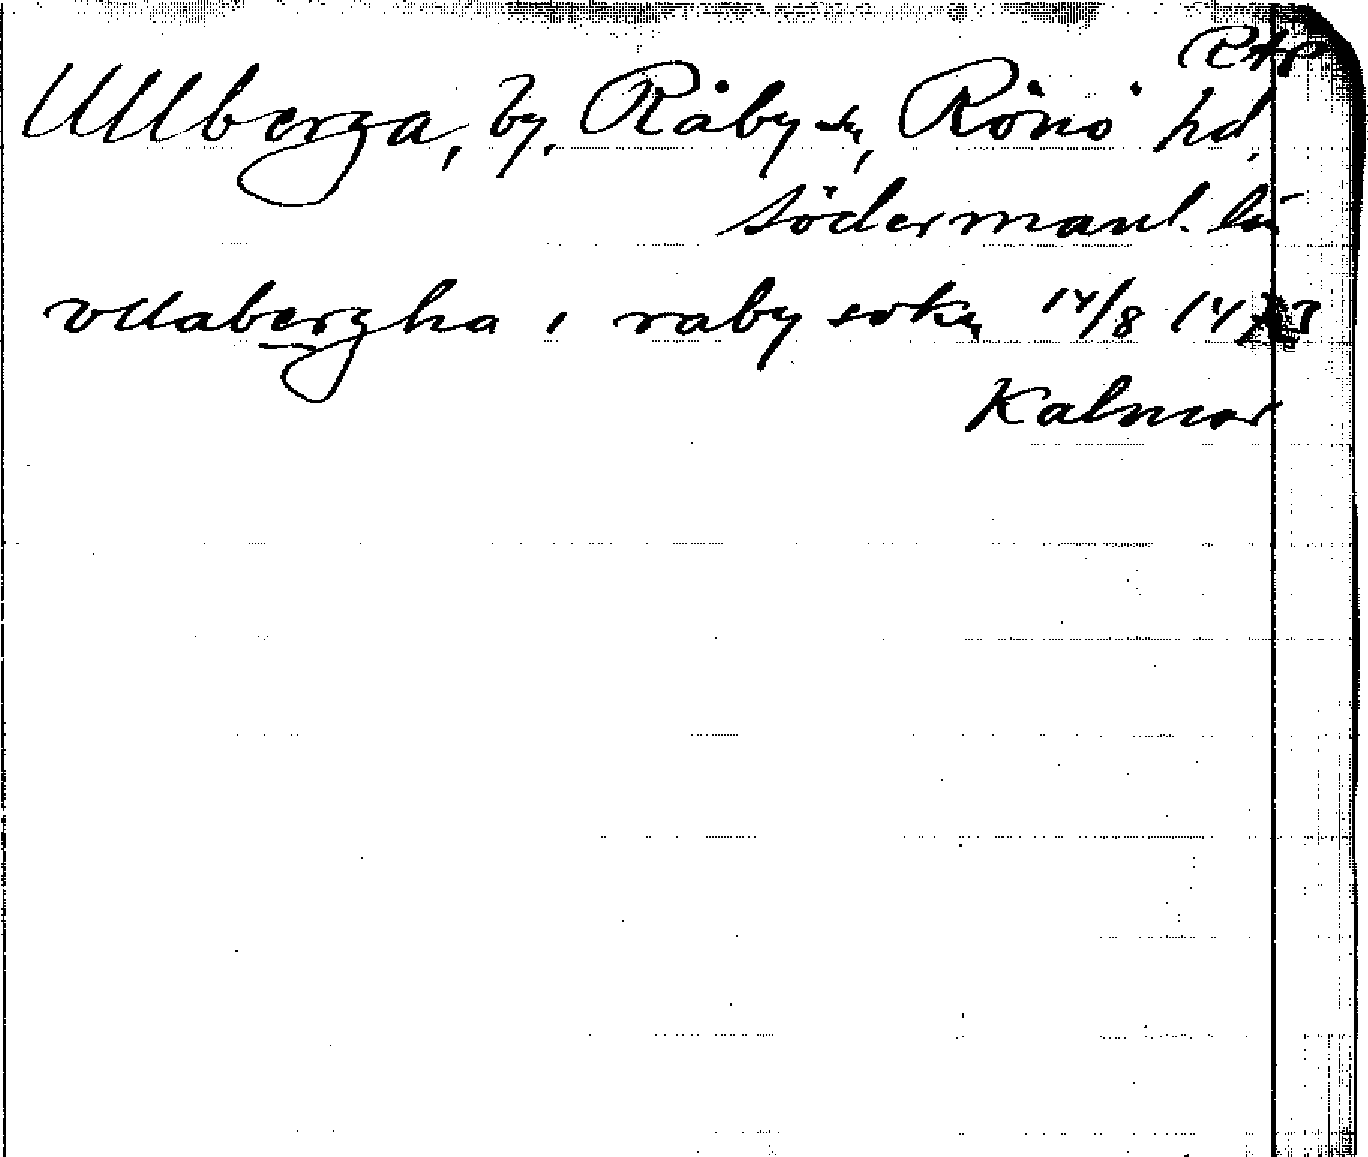 RAp
Ullberga, by, Råby sn, Rönö hd,
Södermanl. län
vllabergha i raby sokn 14/8 14
Kalmar